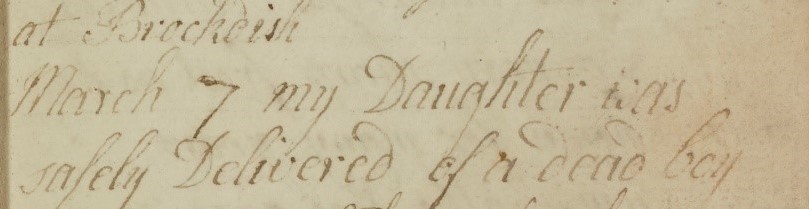 at Brockdish
March 7 my Daughter was
safely Delivered of a dead boy